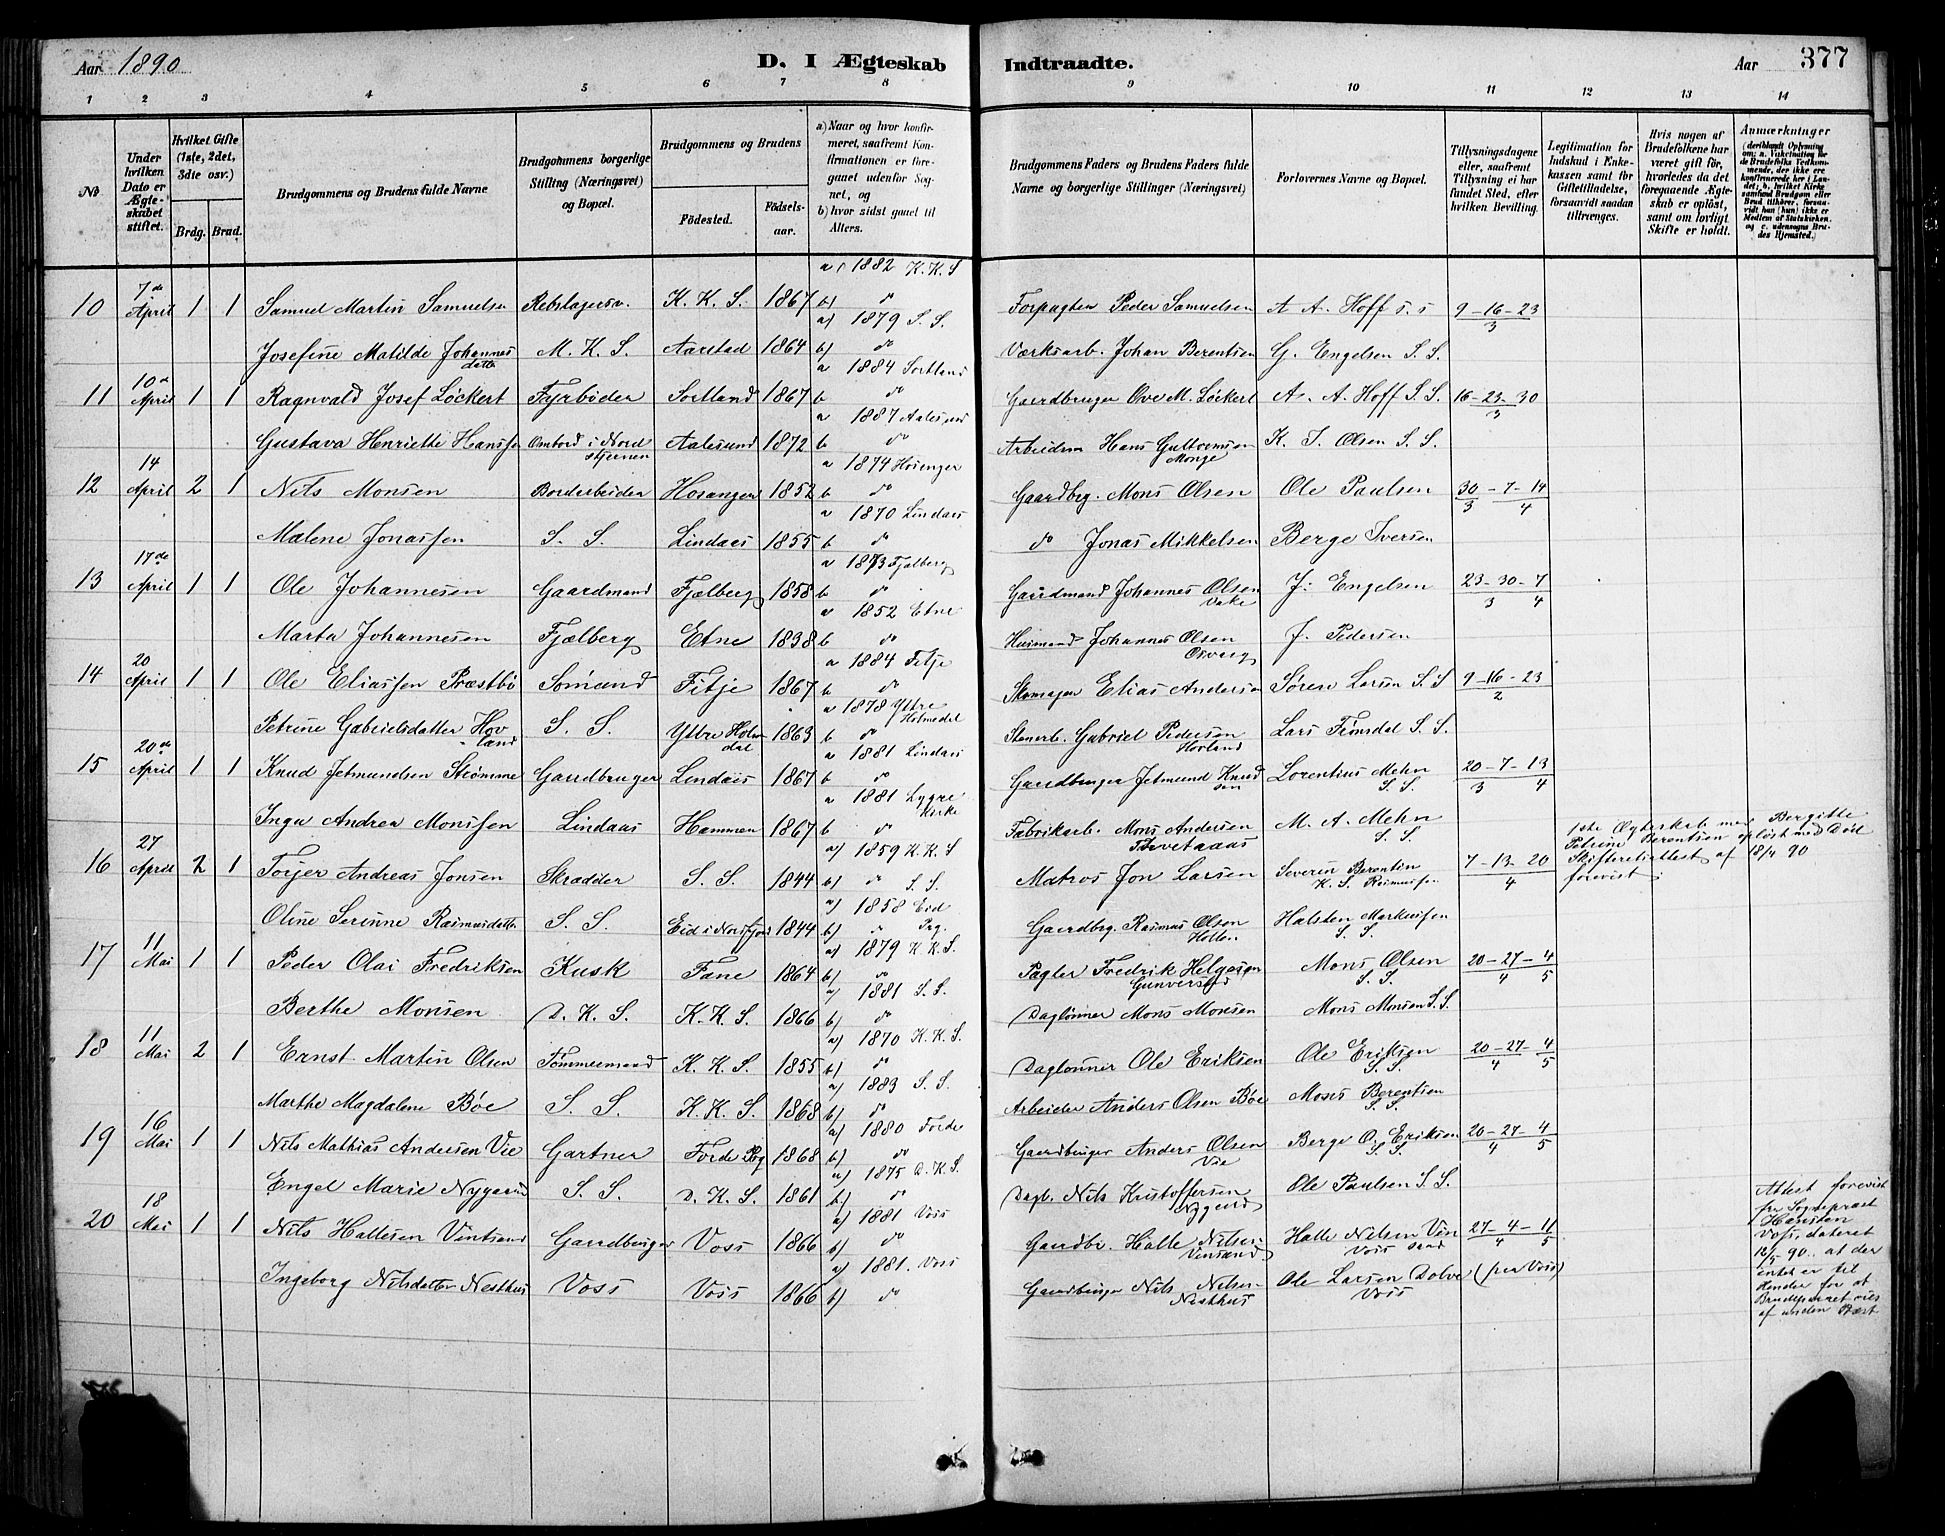 Aar 1890
D. I Ægteskab Indtraadte.
Aar 377
1 2 3 4 5 6 7 8 9 10 11 12 13 14
No
Under hvilken Dato er Ægteskabet stiftet.
Hvilket Gifte (1ste, 2det, 3die osv.)
Brdg. Brud.
Brudgommens og Brudens fulde Navne
Brudgommens borgerlige Stilling (Næringsvei) og Bopæl.
Brudgommens og Brudens
Fødested. Fødselsaar.
a) Naar og hvor konfirmeret, saafremt Konfirmationen er foregaaet udenfor Sognet, og
b) hvor sidst gaaet til Alters.
Brudgommens Faders og Brudens Faders fulde Navne og borgerlige Stillinger (Næringsvei)
Forlovernes Navne og Bopæl.
Tillysningsdagene eller, saafremt Tillysning ei har fundet Sted, efter hvilken Bevilling.
Legitimation for Indskud i Enkekassen samt for Giftetilladelse, forsaavidt saadan tiltrænges.
Hvis nogen af Brudefolkene har været gift før, hvorledes da det foregaaende Ægteskab er opløst, samt om lovligt Skifte er holdt.
Anmærkninger (deriblandt Oplysning om: a. Vakcination for de Brudefolks Vedkommende, der ikke ere konfirmerede her i Landet; b. hvilket Kirkesamfund Brudgom eller Brud tilhører, forsaavidt han (hun) ikke er Medlem af Statskirken, og c. udensogns Brudes Hjemsted.)
a) 1882 K. K. S
10 7de April 1 1 Samuel Martin Samuelsen Rebslagersv. K. K. S. 1867 b) do Forpagter Peder Samuelsen A. A. Hoff S. S 9-16-23/3
a) 1879 S. S.
Josefine Matilde Johannesdatter M. K. S. Aarstad 1864 b) do Værksarb. Johan Berentsen G. Engelsen S. S.
a 1884 Sortland
11 10de April 1 1 Ragnvald Josef Löckert Fyrbøder Sortland 1867 b do Gaardbruger Ove M. Löckert A. A. Hoff S. S. 16-23-30/3
a 1887 Aalesund
Gustava Henriette Hanssen Ombord i Nordstjernen Aalesund 1872 b do Arbeidsm Hans Guttormsen Monge K. J. Olsen S. S.
a 1874 Hosenger
12 14 April 2 1 Nils Monsen Bordarbeider Hosanger 1852 b do Gaardbrg. Mons Olsen Ole Paulsen 30/3-7-14/4
a 1870 Lindaas
Malene Jonassen S. S. Lindaas 1855 b do do Jonas Mikkelsen Berge Iversen
a 1873 Fjelberg
13 17de April 1 1 Ole Johannesen Gaardmand Fjælberg 1858 b do Gaardmand Johannes Olsen J. Engelsen 23-30/3-7/4
a 1852 Etne
Marta Johannesen Fjælberg Etne 1838 b do Husmand Johannes Olsen J. Pedersen
a 1884 Fitje
14 20 April 1 1 Ole Eliassen Præstbö Sømand Fitje 1867 b do Skomager Elias Andersen Søren Larsen S. S 9-16-23/2
a 1878 Yttre Holmedal
Petrine Gabrielsdatter Hovland S. S. Yttre Holmedal 1863 b do Stenarb. Gabriel Pedersen Hovland Lars S. S.
a 1881 Lindaas
15 20de April 1 1 Knud Jetmundsen Strømme Gaardbruger Lindaas 1867 b do Gaardbruger Jetmund Knudsen Lorentius Mehn S. S. 20/3-7-13/4
a 1881 Lygre Kirke
Inga Andrea Monssen Lindaas Hammer 1867 b do Fabrikarb. Mons Andersen M. A. Mehn S. S.
a) 1859 K. K. S
16 27 April 2 1 Torjer Andreas Jonsen Skrædder S. S. 1844 b) do S. S. Matros Jon Larsen Severin Berentin K. S. Rasmussen 7-13-20/4 1ste Ægteskab med Bergitte Petrine Berentsen opløst med Død Skifteretsattest af 18/4 90 forevist.
a) 1858 Eid
Oline Serinne Rasmusdatter S. S. Eid i Nordfjord 1844 b) " Pg. Gaardbrg. Rasmus Olsen Halsten Markussen S. S.
a) 1879 K. K. S.
17 11 Mai 1 1 Peder Olai Fredriksen Kusk Fane 1864 b) do Pagter Fredrik Helgesen Mons Olsen S. S. 20-27/4-4/5
a) 1881 S. S.
Berthe Monsen D. K. S. K. K. S. 1866 b) do Daglønner Mons Monsen Mons Monsen S. S
a) 1870 K. K. S.
18 11 Mai 2 1 Ernst Martin Olsen Tømmermand K. K. S. 1855 b) do Daglønner Ole Eriksen Ole Eriksen S. S. 20-27/4-4/5
a) 1883 S. S.
Marthe Magdalene Böe S. S. K. K. S. 1868 b) do Arbeider Anders Olsen Böe Mons Berentsen S. S.
a) 1880 Førde
19 16 Mai 1 1 Nils Mathias Andersen Vie Gartner Førde Pg 1868 b) do Gaardbruger Anders Olsen Vie Berge O. Eriksen S. S. 20-27/4-4/5
a) 1875 D. K. S.
Engel Marie Nygaard S. S. D. K. S. 1861 b) do Dagl. Nils Kristoffersen Nygaard Ole Paulsen S. S.
a) 1881 Voss
20 18 Mai 1 1 Nils Hallesen Vintsand Gaardbruger Voss 1866 b) do Gaardbr. Halle Nilsen Vinsand Halle Nilsen Vinsand Voss 27/4-4-11/5
a) 1881. Voss
Ingeborg Nilsdatter Nesthus Voss Voss 1866 b) do Gaardbruger Nils Nilsen Nesthus Ole Larsen Dolve Voss (fra Voss)
Attest forevist fra Sognepræst Hansten Voss, dateret 16/5 90. at der intet er til Hinder for at Brudeparret vies af anden Præst